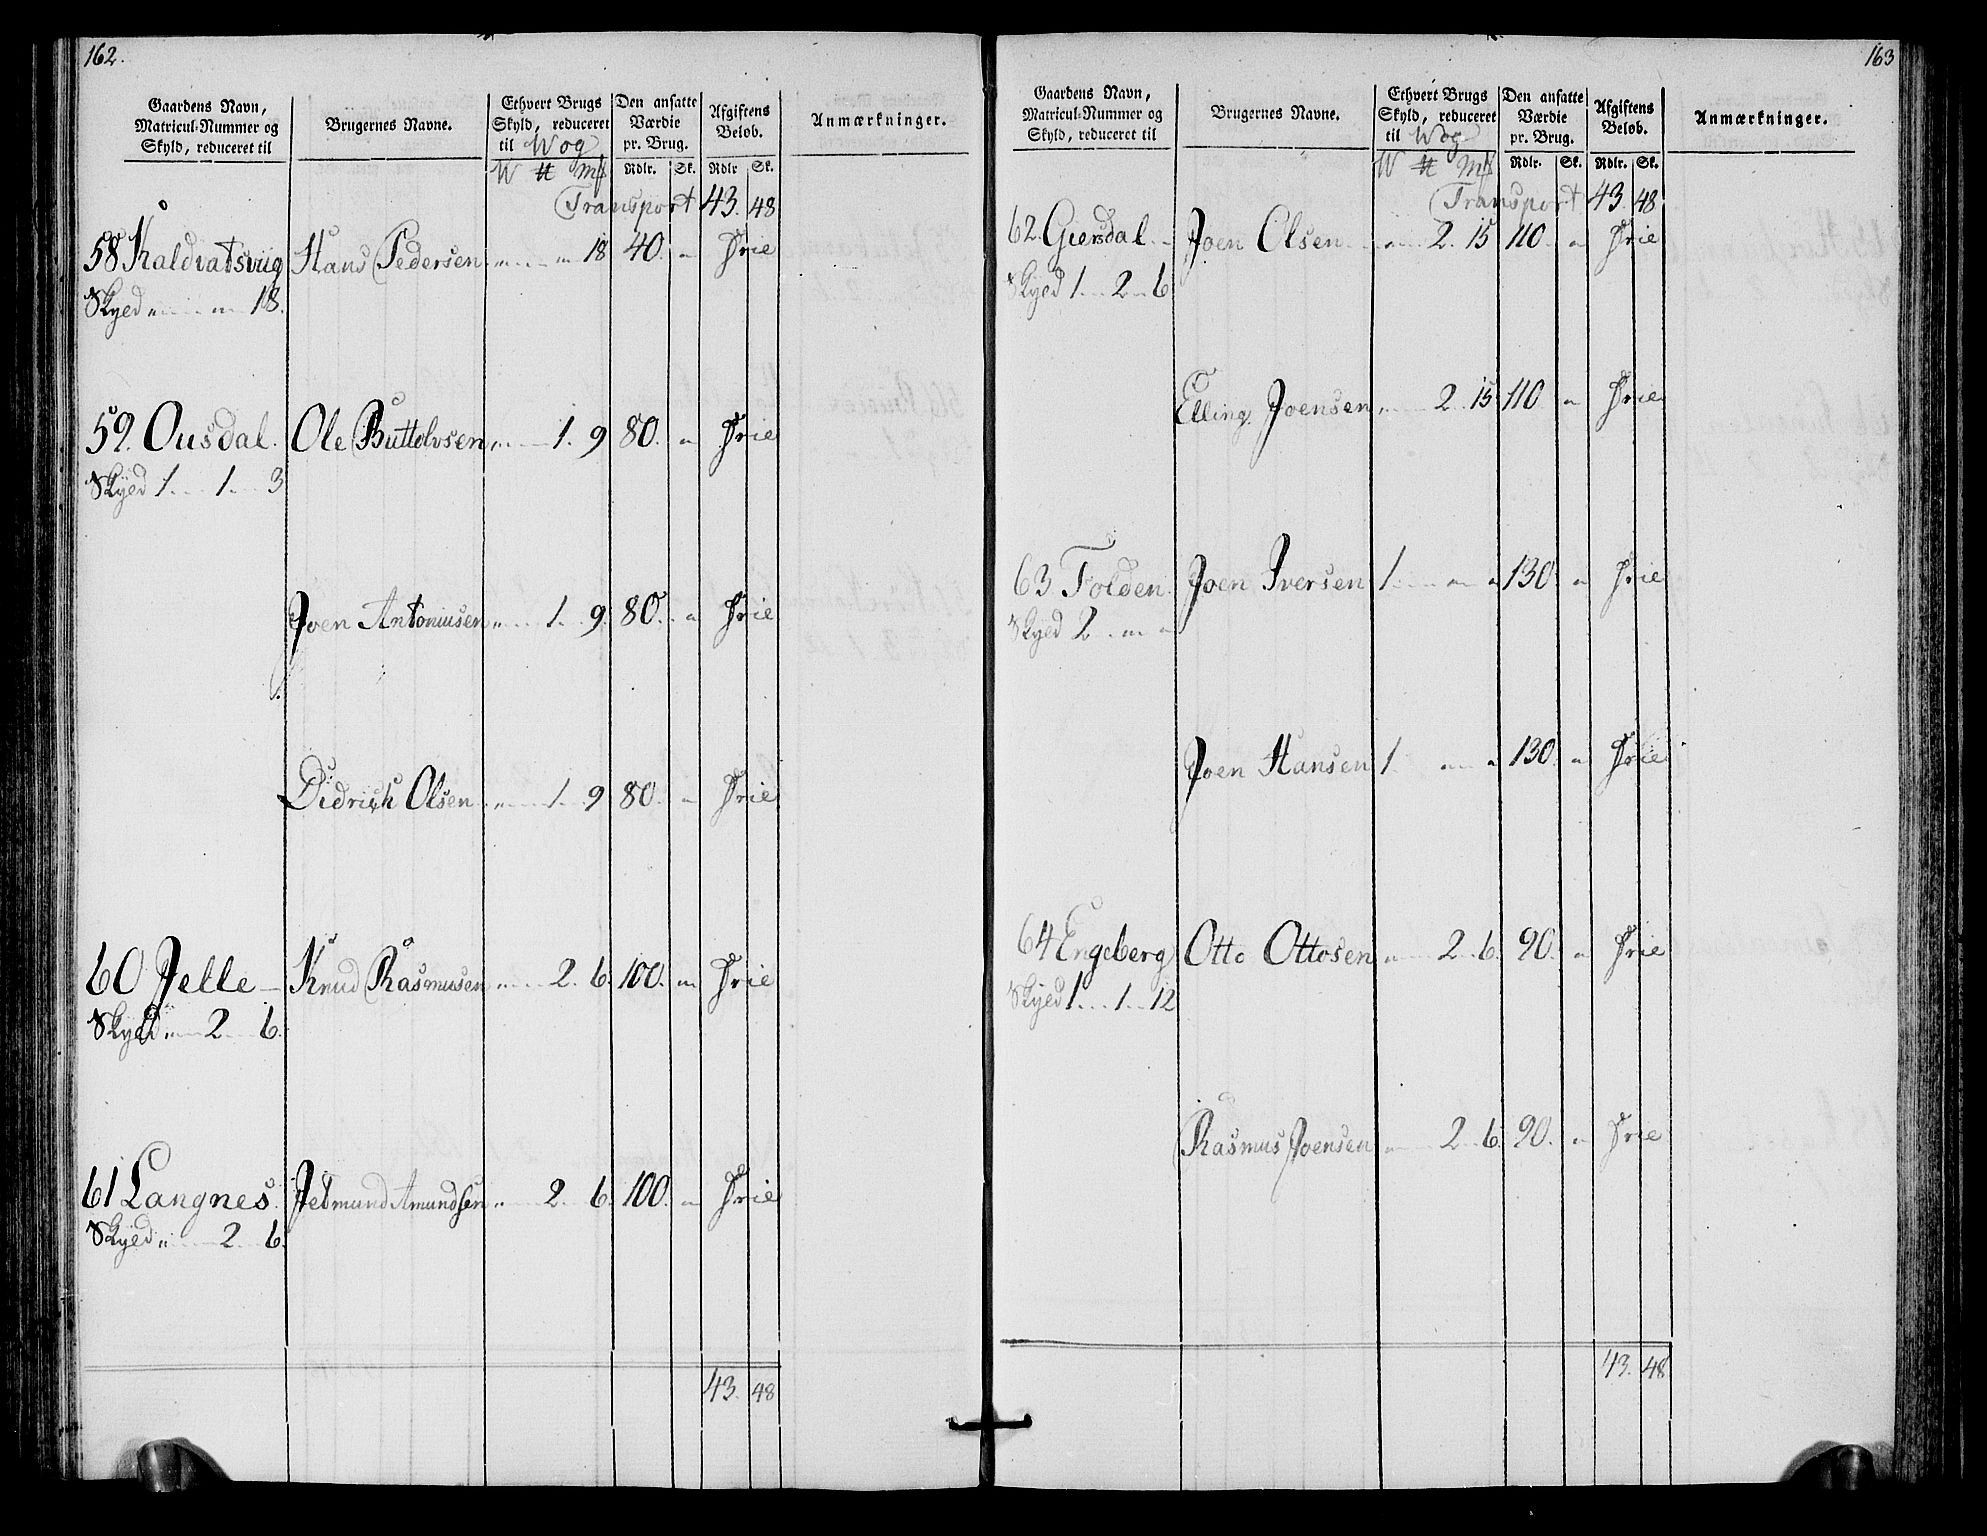 162.
Gaardens Navn, Matricul-Nummer og Skyld, reduceret til
Brugernes Navne.
Ethvert Brugs Skyld, reduceret til Wog
Den ansatte Værdie pr. Brug.
Afgiftens Beløb.
Anmærkninger.
W ℔ Mk Rdlr. Sk. Rdlr Sk.
Transport 43. 48
58 Kaldvatsviig Hans Pedersen „ „ 18 40. „ Frie
Skyed „ „ 18.
59. Ousdal. Ole Buttolvsen „ 1. 9 80. „ Frie
Skyed 1. 1. 3
Joen Antoniusen „ 1. 9. 80. „ Frie
Didrich Olsen „ 1. 9 80. „ Frie
60 Jelle Knud Rasmusen „ 2. 6. 100. „ Frie
Skyld „ 2. 6.
61 Langnes. Jetmund Amundsen „ 2. 6. 100. „ Frie
Skyld „ 2. 6.
43. 48
163
Gaardens Navn, Matricul-Nummer og Skyld, reduceret til
Brugernes Navne.
Ethvert Brugs Skyld, reduceret til Wog
Den ansatte Værdie pr. Brug.
Afgiftens Beløb.
Anmærkninger.
W ℔ Mk Rdlr. Sk. Rdlr. Sk.
Transport 43. 48
62. Giersdal Joen Olsen „ 2. 15 110. „ Frie
Skyed 1. 2. 6
Elling Joensen „ 2. 15 110. „ Frie
63 Folden. Joen Iversen 1 „ „ 130. „ Frie
Skyed 2. „ „
Joen Hansen 1 „ „ 130. „ Frie
64 Engeberg Otto Ottosen „ 2. 6. 90. „ Frie
Skyed 1. 1. 12
Rasmus Joensen „ 2. 6. 90. „ Frie
43. 48